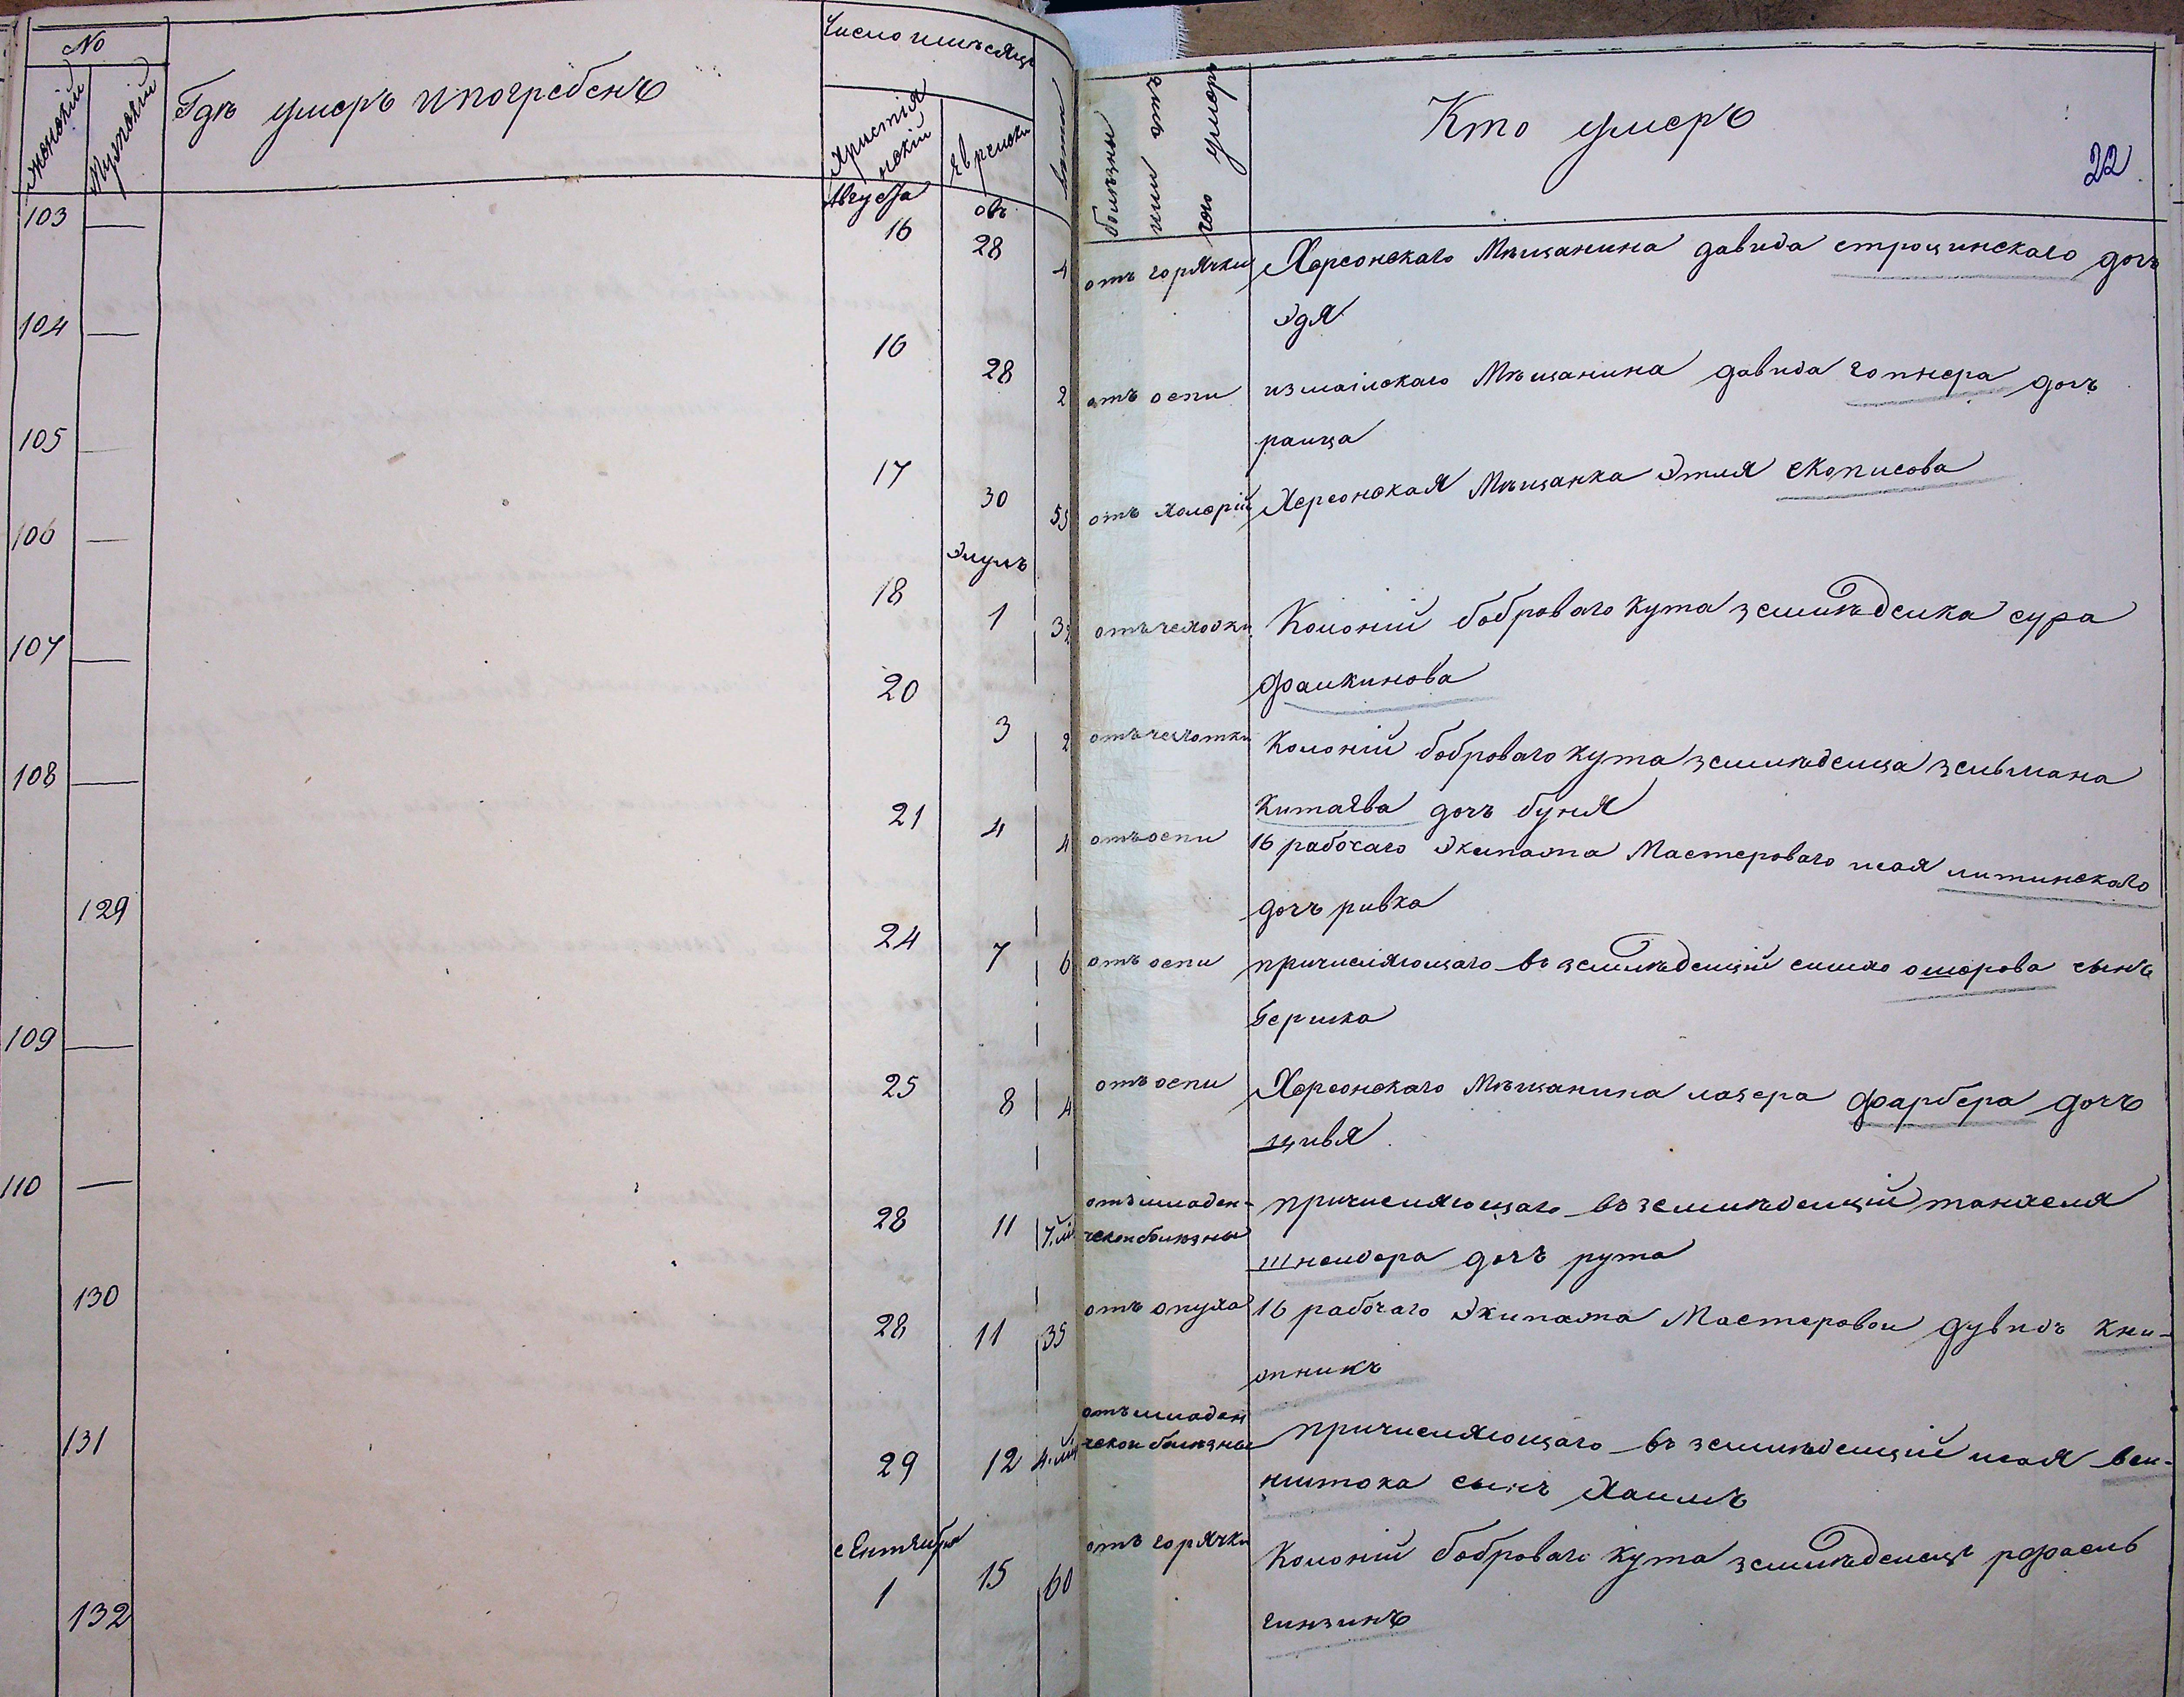 №
Женский
Мужской
Гдѣ умеръ и погребенъ
Число и мѣсяцъ
Христiянскiй
Еврейски
Лѣта
болѣзны или отъ чого умеръ
Кто умеръ
22
103 — Августа 16 овъ 28 4 отъ горячки Херсонскаго Мѣщанина давида строцинскаго дочъ
Эдя
104 — 16 28 2 отъ оспи измаiлскаго Мѣщанина давида гопнера дочъ
раица
105 — 17 30 55 отъ холерiи Херсонская Мѣщанка Этля скописова
106 — 18 Элулъ 1 32 отъ чехотки Колонiи боброваго кута землѣделка сура
фаикинова
107 — 20 3 2 отъ чехотки Колонiи боброваго кута землѣделца зельмана
Китаева дочъ буня
108 — 21 4 4 отъ оспи 16 рабочаго Экипажа Мастероваго исая литинскаго
дочъ ривка
129 24 7 6 отъ оспи причисляющаго въ землѣделцiи симхо ошерова сынъ
Берилка
109 — 25 8 4 отъ оспи Херсонскаго Мѣщанина лазера фарбера дочъ
цивя
110 — 28 11 7.мѣ отъ младен-
ческои болѣзны причисляющаго въ землѣделцiи танхеля
шнеидера дочъ рута
130 28 11 35 отъ опуха 16 рабочаго Экипажа Мастеровои дувидъ Кни-
жникъ
131 29 12 4.мѣ отъ младен
ческои болѣзны причисляющаго въ землѣделцiи исая веи-
нштока сынъ Хаимъ
132 сентября 1 15 60 отъ горячки Колонiи боброваго кута землѣделецъ рефаелъ
гинзинъ